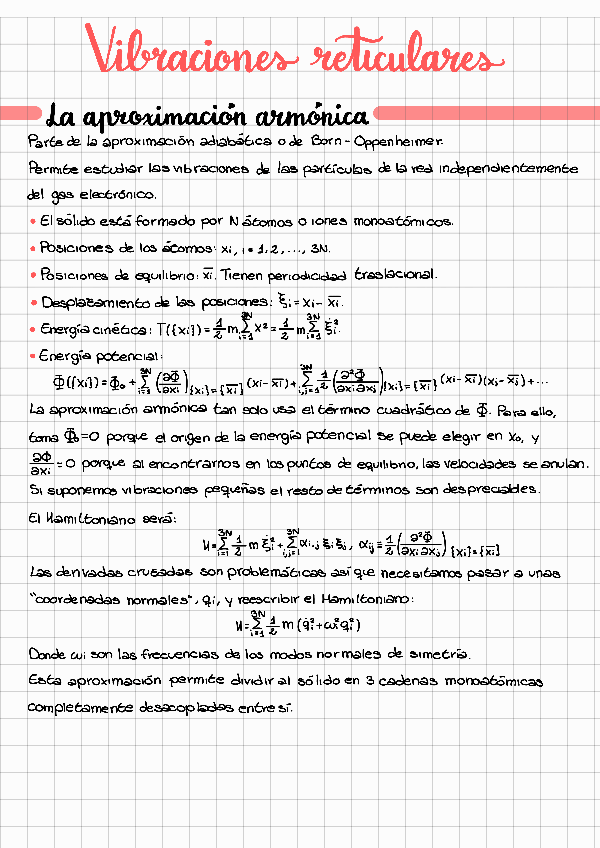 Vibraciones reticulares
La aproximación armónica
Parte de la aproximación adiabática o de Born-Oppenheimer.
Permite estudiar las vibraciones de las partículas de la red independientemente
del gas electrónico.
• El sólido está formado por N átomos o iones monoatómicos.
• Posiciones de los átomos: xi, i = 1, 2, ..., 3N.
• Posiciones de equilibrio: x̅i. Tienen periodicidad traslacional.
• Desplazamiento de las posiciones: ξi = xi - x̅i.
• Energía cinética: T({xi}) = 1/2 m ∑_{i=1}^{3N} ẋ² = 1/2 m ∑_{i=1}^{3N} ξ̇i².
• Energía potencial:
Φ({xi}) = Φ₀ + ∑_{i=1}^{3N} (∂Φ/∂xi)_{{xi}={x̅i}} (xi - x̅i) + ∑_{i,j=1}^{3N} 1/2 (∂²Φ/∂xi∂xj)_{{xi}={x̅i}} (xi - x̅i)(xj - x̅j) + ...
La aproximación armónica tan solo usa el término cuadrático de Φ. Para ello,
toma Φ₀=0 porque el origen de la energía potencial se puede elegir en x₀, y
∂Φ/∂xi = 0 porque al encontrarnos en los puntos de equilibrio, las velocidades se anulan.
Si suponemos vibraciones pequeñas el resto de términos son despreciables.
El Hamiltoniano será:
H = ∑_{i=1}^{3N} 1/2 m ξ̇i² + ∑_{i,j=1}^{3N} αi,j ξi ξj, αij ≡ 1/2 (∂²Φ/∂xi∂xj)_{{xi}={x̅i}}
Las derivadas cruzadas son problemáticas así que necesitamos pasar a unas
"coordenadas normales", qi, y reescribir el Hamiltoniano:
H = ∑_{i=1}^{3N} 1/2 m (q̇i² + ωi² qi²)
Donde ωi son las frecuencias de los modos normales de simetría.
Esta aproximación permite dividir al sólido en 3 cadenas monoatómicas
completamente desacopladas entre sí.